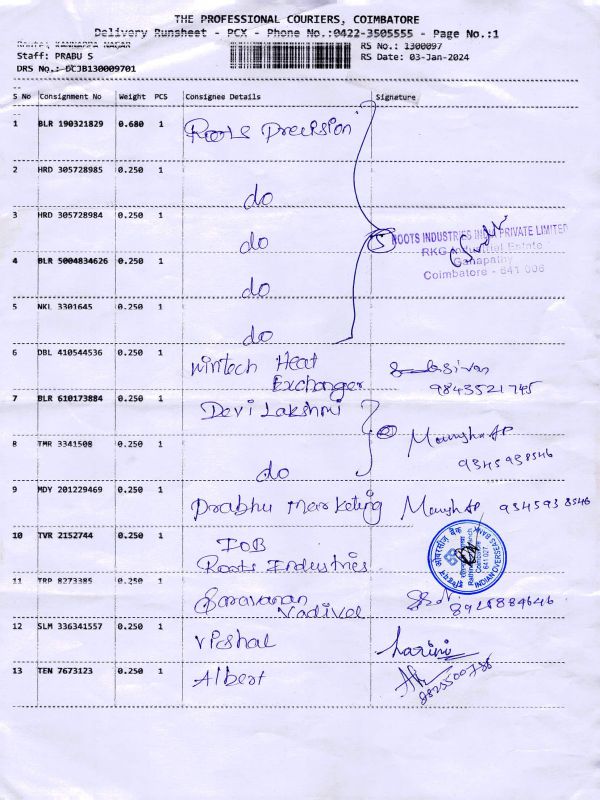 THE PROFESSIONAL COURIERS, COIMBATORE
Delivery Runsheet - PCX - Phone No.:0422-3505555 - Page No.:1
Route: KANNAPPA NAGAR
RS No.: 1300097
Staff: PRABU S
RS Date: 03-Jan-2024
DRS No.: DCJB130009701
S No Consignment No Weight PCS Consignee Details Signature
1 BLR 190321829 0.680 1 Roots Precision
2 HRD 305728985 0.250 1 do
3 HRD 305728984 0.250 1 do
5 ROOTS INDUSTRIES INDIA PRIVATE LIMITED
RKG Industrial Estate
Ganapathy
Coimbatore - 641 006
4 BLR 5004834626 0.250 1 do
5 NKL 3301645 0.250 1 do
6 DBL 410544536 0.250 1 Wintech Heat
Exchanger
9843521745
7 BLR 610173884 0.250 1 Devi Lakshmi
8 TMR 3341508 0.250 1 do
9345938546
9 MDY 201229469 0.250 1 Prabhu Marketing 9345938546
10 TVR 2152744 0.250 1 IOB
Roots Industries
इण्डियन ओवरसीज़ बैंक INDIAN OVERSEAS BANK
Coimbatore
641 027
11 TRP 8273385 0.250 1 Saravanan
Vadivel
8925884646
12 SLM 336341557 0.250 1 Vishal harini
13 TEN 7673123 0.250 1 Albert